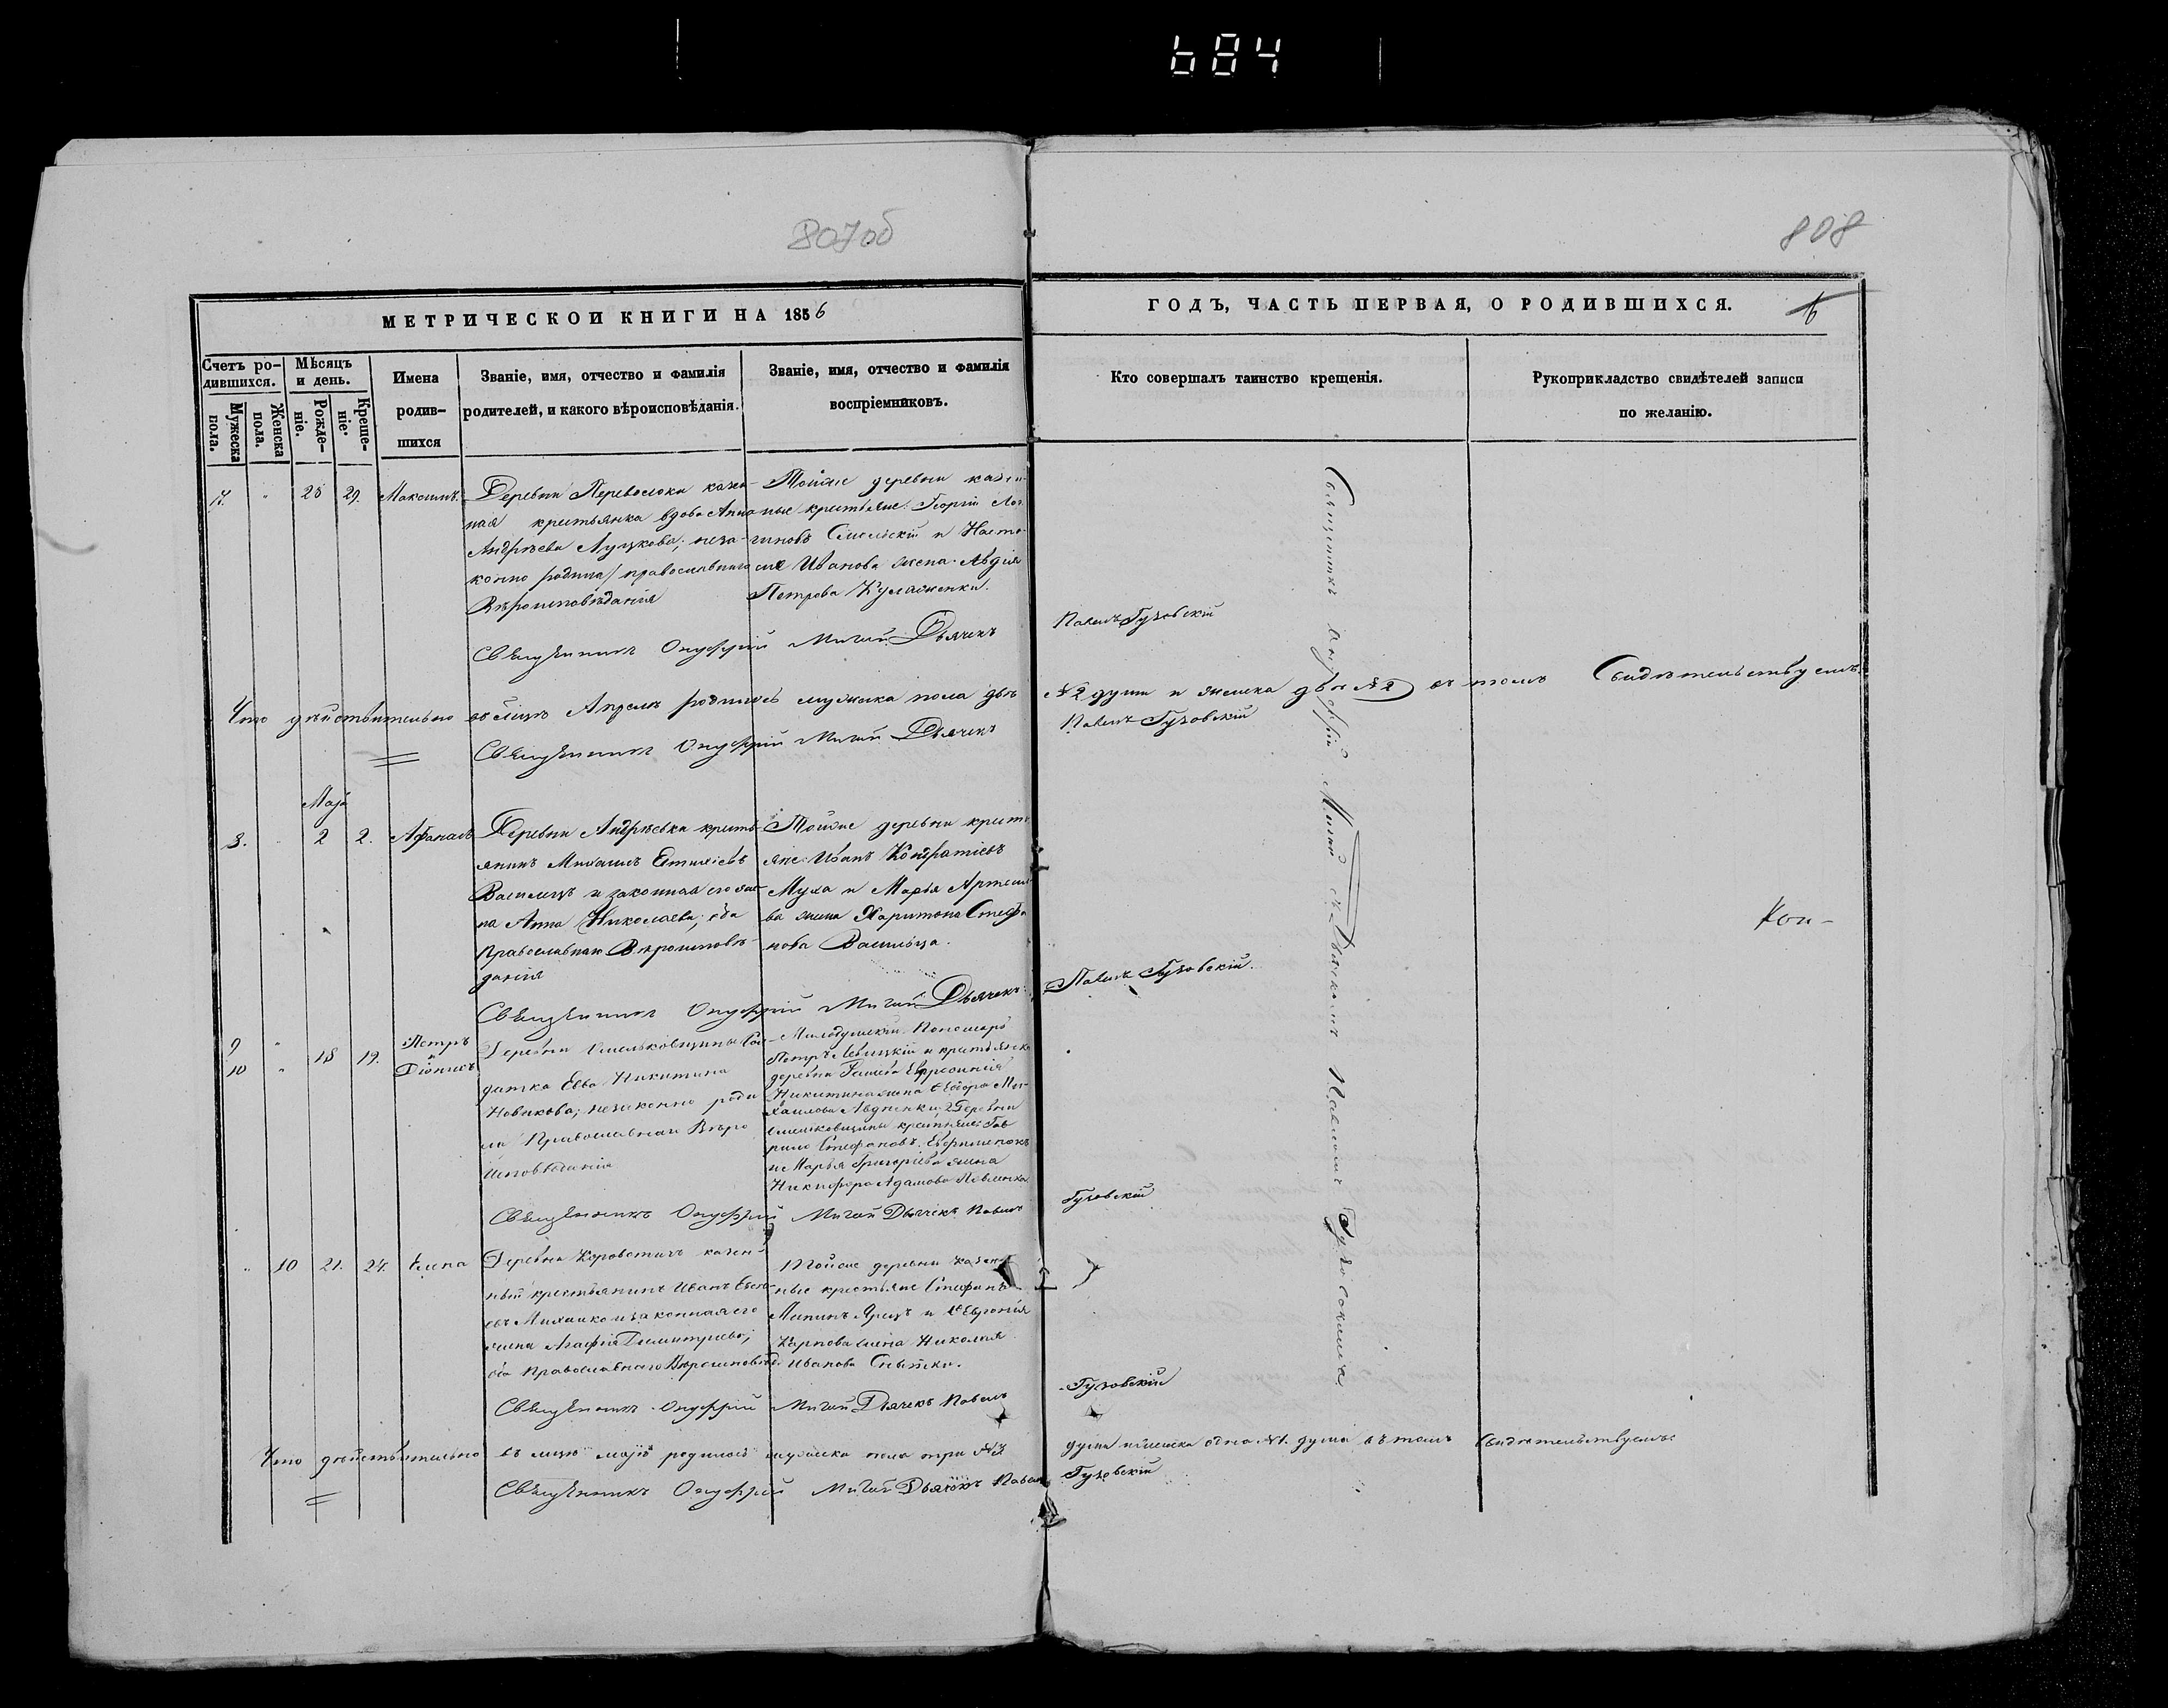 684
807об
808
МЕТРИЧЕСКОЙ КНИГИ НА 1856
ГОДЪ, ЧАСТЬ ПЕРВАЯ, О РОДИВШИХСЯ.
6
Счетъ ро-
дившихся.
Мужеска
пола.
Женска
пола.
Мѣсяцъ
и день.
Рожде-
ніе.
Креще-
ніе.
Имена
родив-
шихся
Званіе, имя, отчество и фамилія
родителей, и какого вѣроисповѣданія.
Званіе, имя, отчество и фамилія
воспріемниковъ.
Кто совершалъ таинство крещенія.
Рукоприкладство свидѣтелей записи
по желанію.
29. Максимъ.
Деревни Переволоки казен-
ная крестьянка вдова Анна
Андрѣева Луцкова, неза-
конно родила православнаго
Вѣроисповѣданія
Тойже деревни казен-
ные крестьяне Георгій
и Наста-
сія Иванова жена Авдія
Петрова
Священникъ Онуфрій Мигай Дьячекъ
Павелъ Гузовскій
Что дѣйствительно въ Апрелѣ родилось мужеска пола двѣ
№2 души и женска двѣ №2 въ томъ Свидѣтельствуемъ
Священникъ Онуфрій Мигай Дьячекъ
Павелъ Гузовскій
Маја
2 2. Афанасъ
Деревни Андрѣевки кресть-
янинъ Михаилъ
Василецъ и законная его же-
на Анна Николаева, оба
Православнаго Вѣроисповѣ-
данія
Тойже деревни кресть-
яне Иванъ Кондратіевъ
Муха и Марья Артемье-
ва жена Харитона Стефа
нова Васильца.
Священникъ Онуфрій Мигай Дьячекъ
Павелъ Гузовскій.
Коп-
9
10
18 19.
Петръ
и
Діонисъ
Деревни Омельковщины Сол-
датка Евва Никитина
Новикова, незаконно роди
ла Православнаго Вѣро
исповѣданія
Пономарь
Петръ Левицкій и крестьянка
деревни Евфросинія
Никитина жена Ѳеодора Ми-
хаилова 2 Деревни
Омельковщины крестьяне Гав
рило Стефановъ
и Марья Григорьева жена
Никифора Адамова
Священникъ Онуфрій Мигай Дьячекъ Павелъ
Гузовскій
10 21. 24. Елена
Деревни казен-
ный крестьянинъ Иванъ
и законная его
жена Агафія Димитріева,
оба Православнаго Вѣроисповѣд.
Тойже деревни казен-
ные крестьяне Стефанъ
и
Карпова жена Николая
Иванова
Священникъ Онуфрій Мигай Дьячекъ Павелъ
Гузовскій
Что дѣйствительно въ маје родилось мужеска пола три №3
души и женска одна №1. душа въ томъ Свидѣтельствуемъ
Священникъ Онуфрій Мигай Дьячекъ Павелъ
Гузовскій
Священникъ Онуфрій Мигай съ Дьячкомъ Павломъ Гузовскимъ